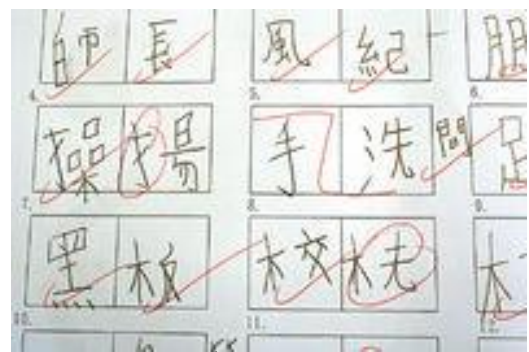 師長 風紀 服
4. 5. 6.
操揚 手洗間 足
7. 8. 9.
黑板 校
10. 11. 12.